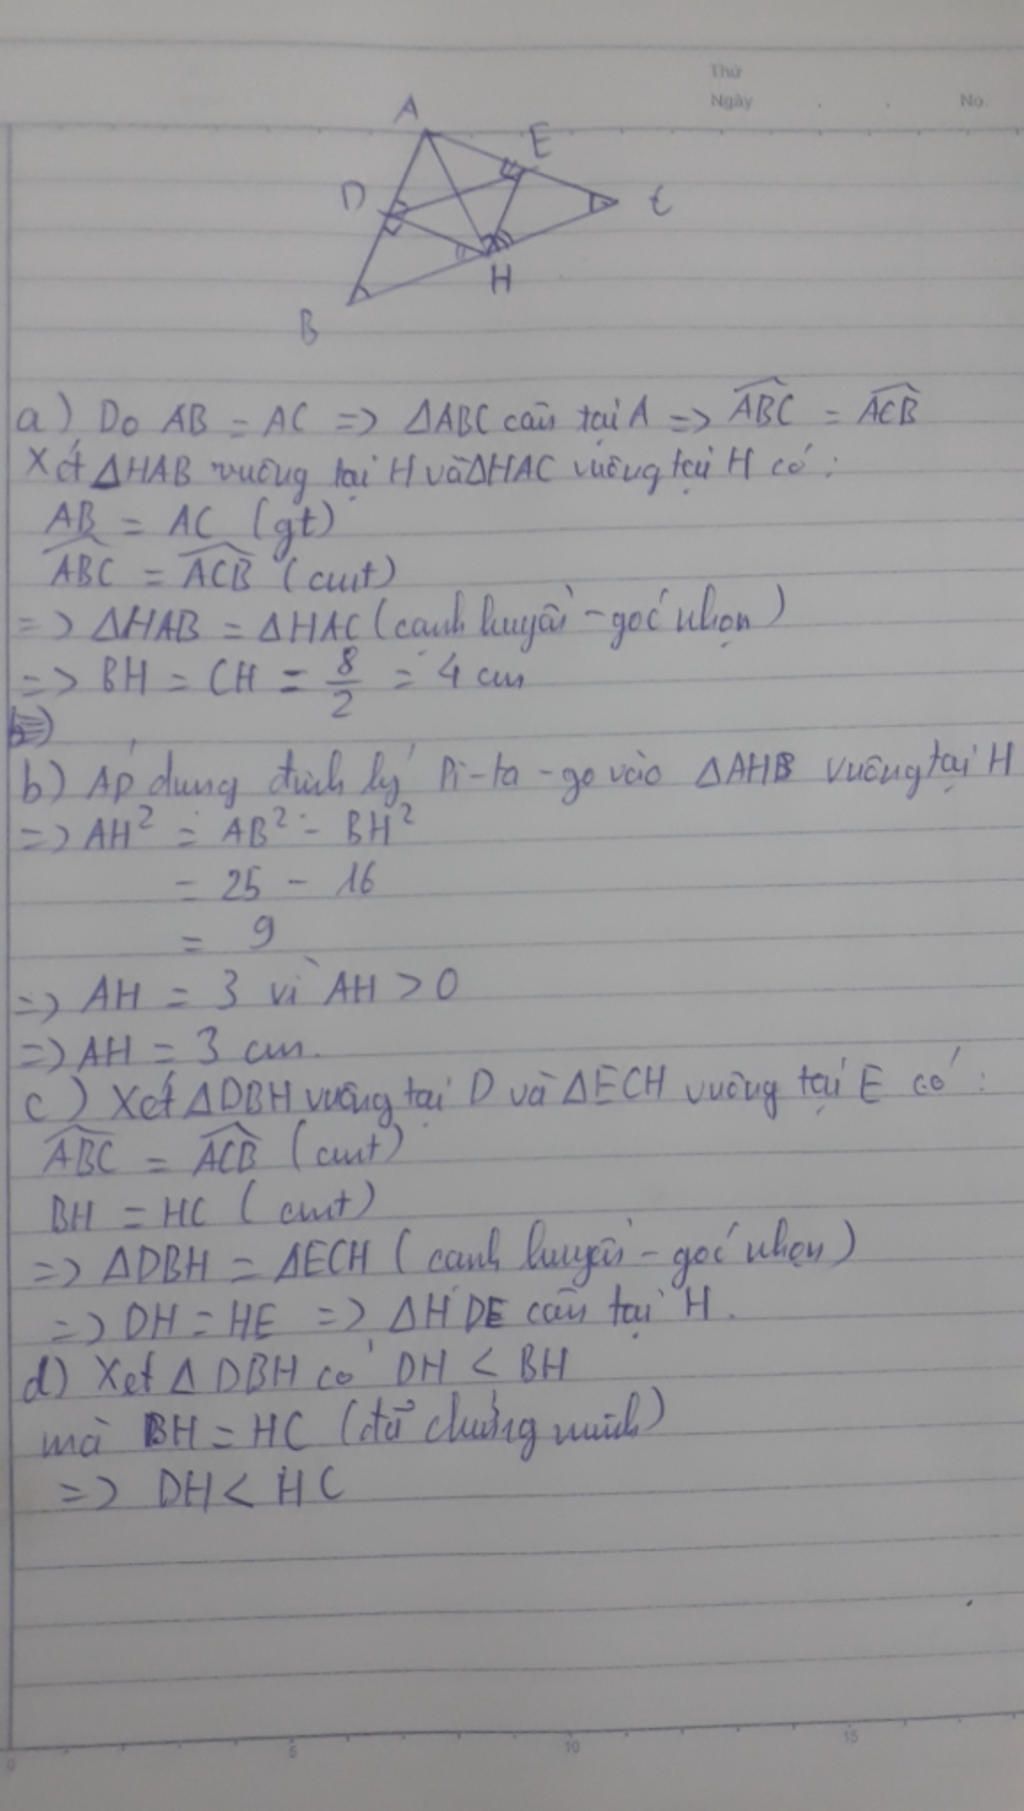 Thứ
Ngày . . No.
A
E
D
C
H
B
a) Do AB = AC => ΔABC cân tại A => \widehat{ABC} = \widehat{ACB}
Xét ΔHAB vuông tại H và ΔHAC vuông tại H có:
AB = AC (gt)
\widehat{ABC} = \widehat{ACB} (cmt)
=> ΔHAB = ΔHAC (cạnh huyền - góc nhọn)
=> BH = CH = 8/2 = 4 cm
b) Áp dụng định lý Pi-ta-go vào ΔAHB vuông tại H
=> AH² = AB² - BH²
= 25 - 16
= 9
=> AH = 3 vì AH > 0
=> AH = 3 cm.
c) Xét ΔDBH vuông tại D và ΔECH vuông tại E có:
\widehat{ABC} = \widehat{ACB} (cmt)
BH = HC (cmt)
=> ΔDBH = ΔECH (cạnh huyền - góc nhọn)
=> DH = HE => ΔHDE cân tại H.
d) Xét ΔDBH có DH < BH
mà BH = HC (đã chứng minh)
=> DH < HC
0 5 10 15